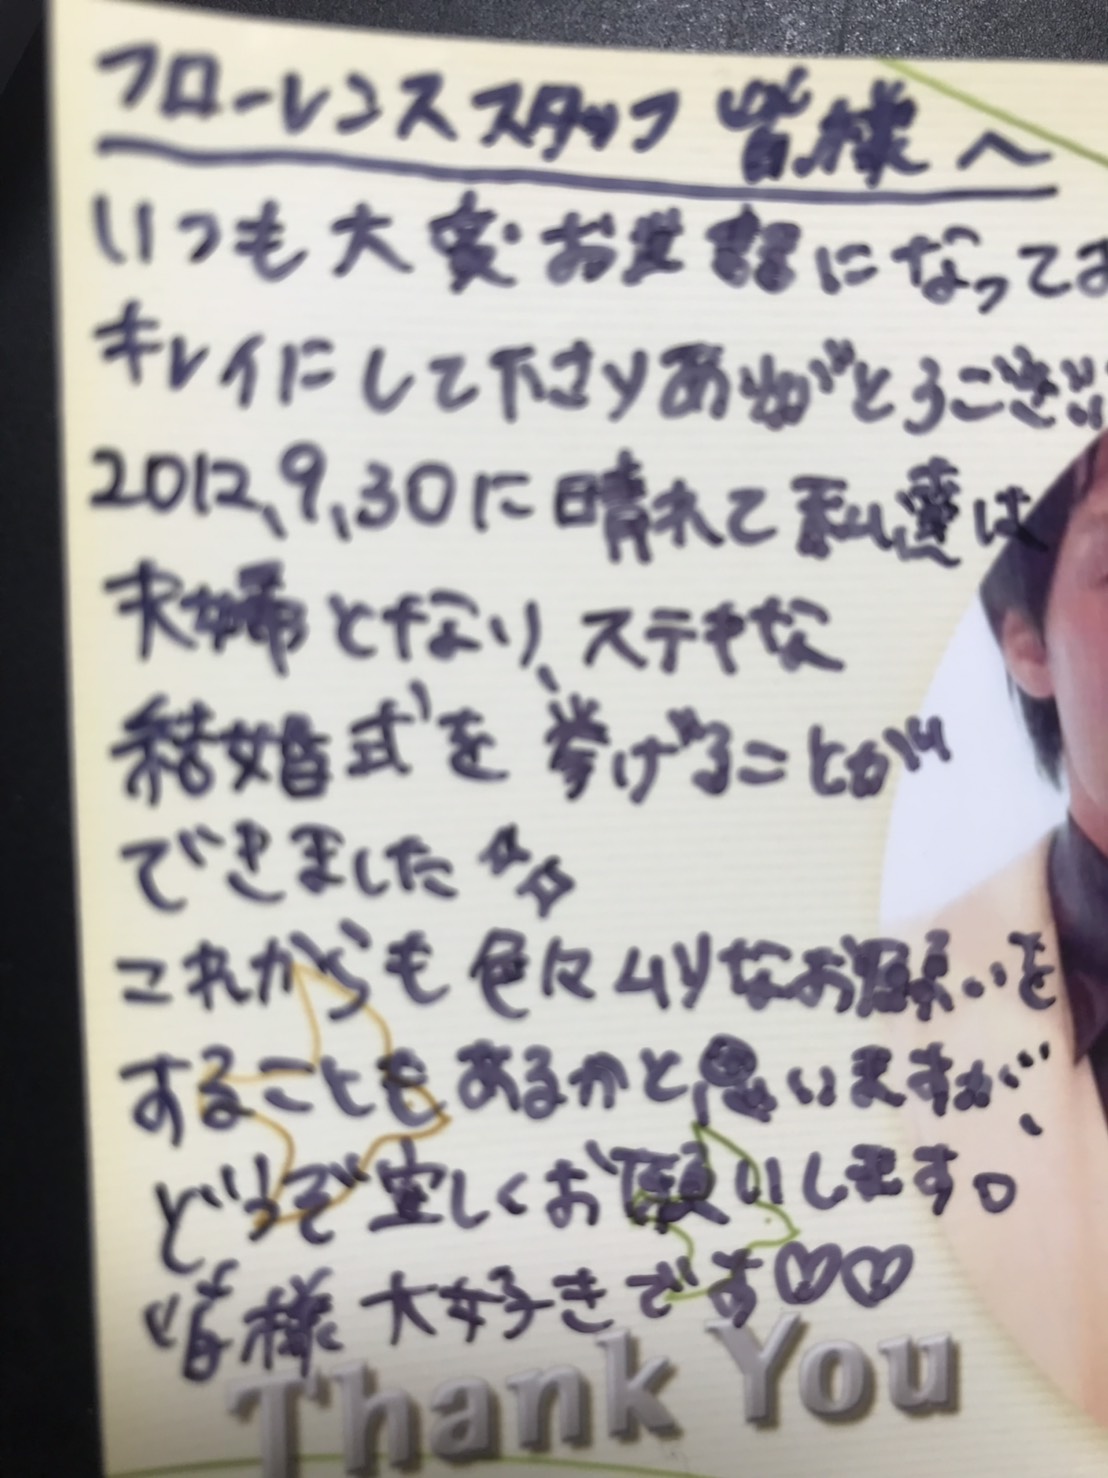 フローレンススタッフ 皆様へ
いつも大変お世話になってお
キレイにして下さりありがとうござい
2012,9,30に晴れて私達は
夫婦となり、ステキな
結婚式を挙げることが
できました
これからも色々ムリなお願いを
することもあるかと思いますが、
どうぞ宜しくお願いします。
皆様 大好きです♡♡
Thank You